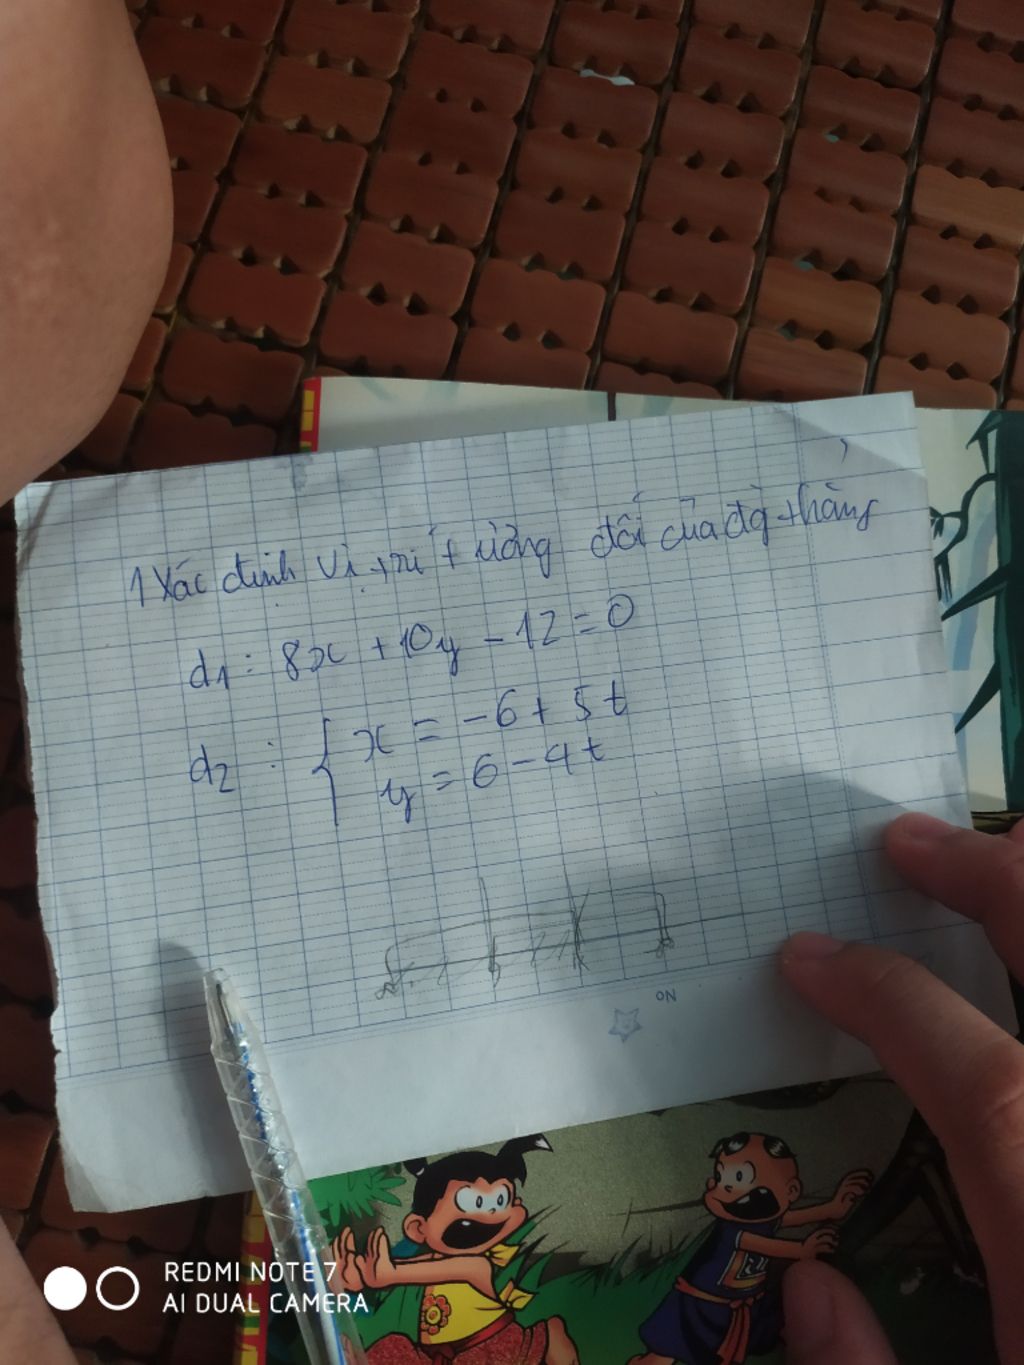 1 Xác định vị trí tương đối của đg thẳng
d1 : 8x + 10y - 12 = 0
d2 : { x = -6 + 5t
y = 6 - 4t
NO
REDMI NOTE 7
AI DUAL CAMERA